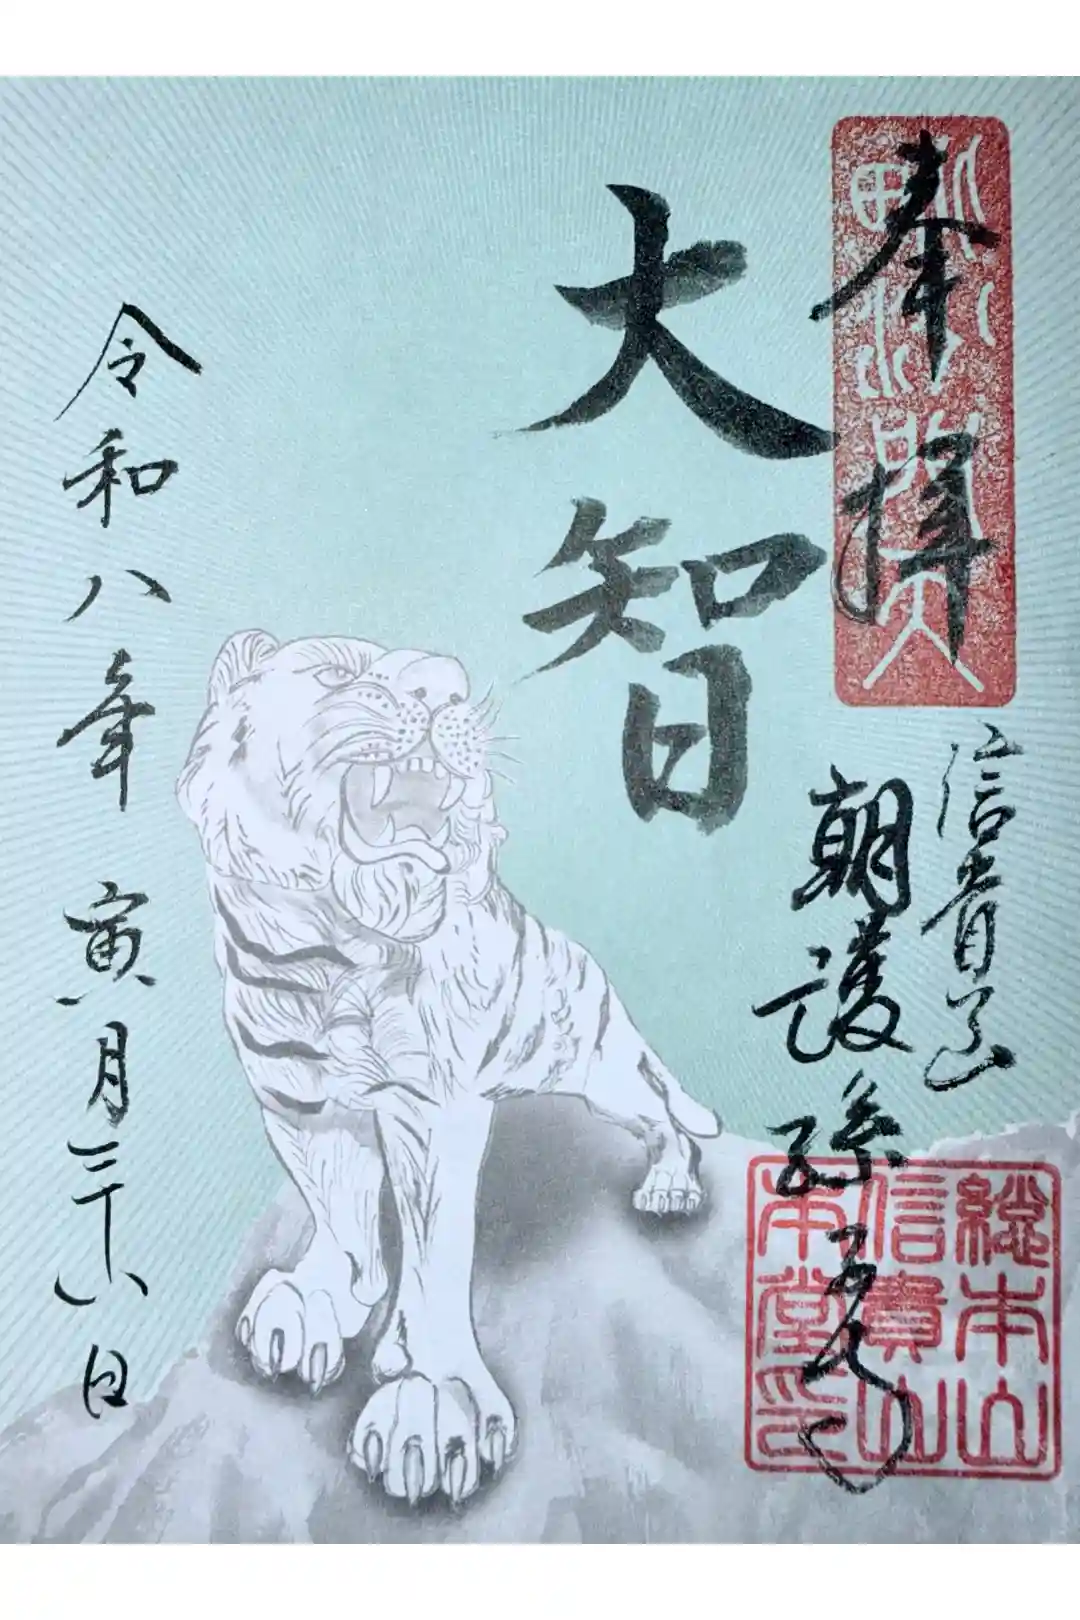 奉拝
毘沙門天
信貴山
朝護孫子寺
総本山
信貴山
本堂印
大智
令和八年寅月二十八日